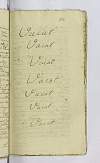 Vacat
Vacat
Vacat
Vacat
Vacat
Vacat
Vacat